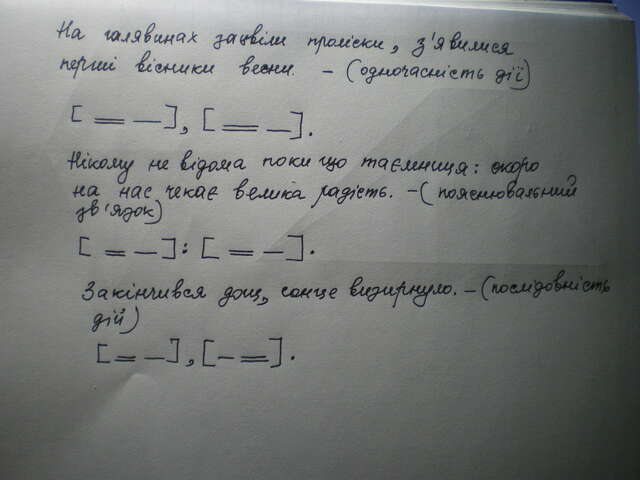 На галявинах зацвіли проліски, з'явилися
перші вісники весни. – (одночасність дії)
[ = – ], [ = – ].
Нікому не відома поки що таємниця: скоро
на нас чекає велика радість. – (пояснювальний
зв'язок)
[ = – ] : [ = – ].
Закінчився дощ, сонце визирнуло. – (послідовність
дій)
[ = – ], [ – = ].